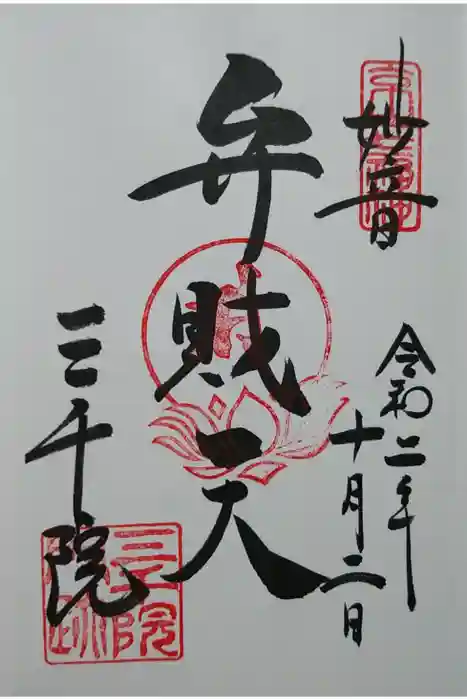 妙音
弁財天
令和二年
十月二日
三千院
三千院
門跡